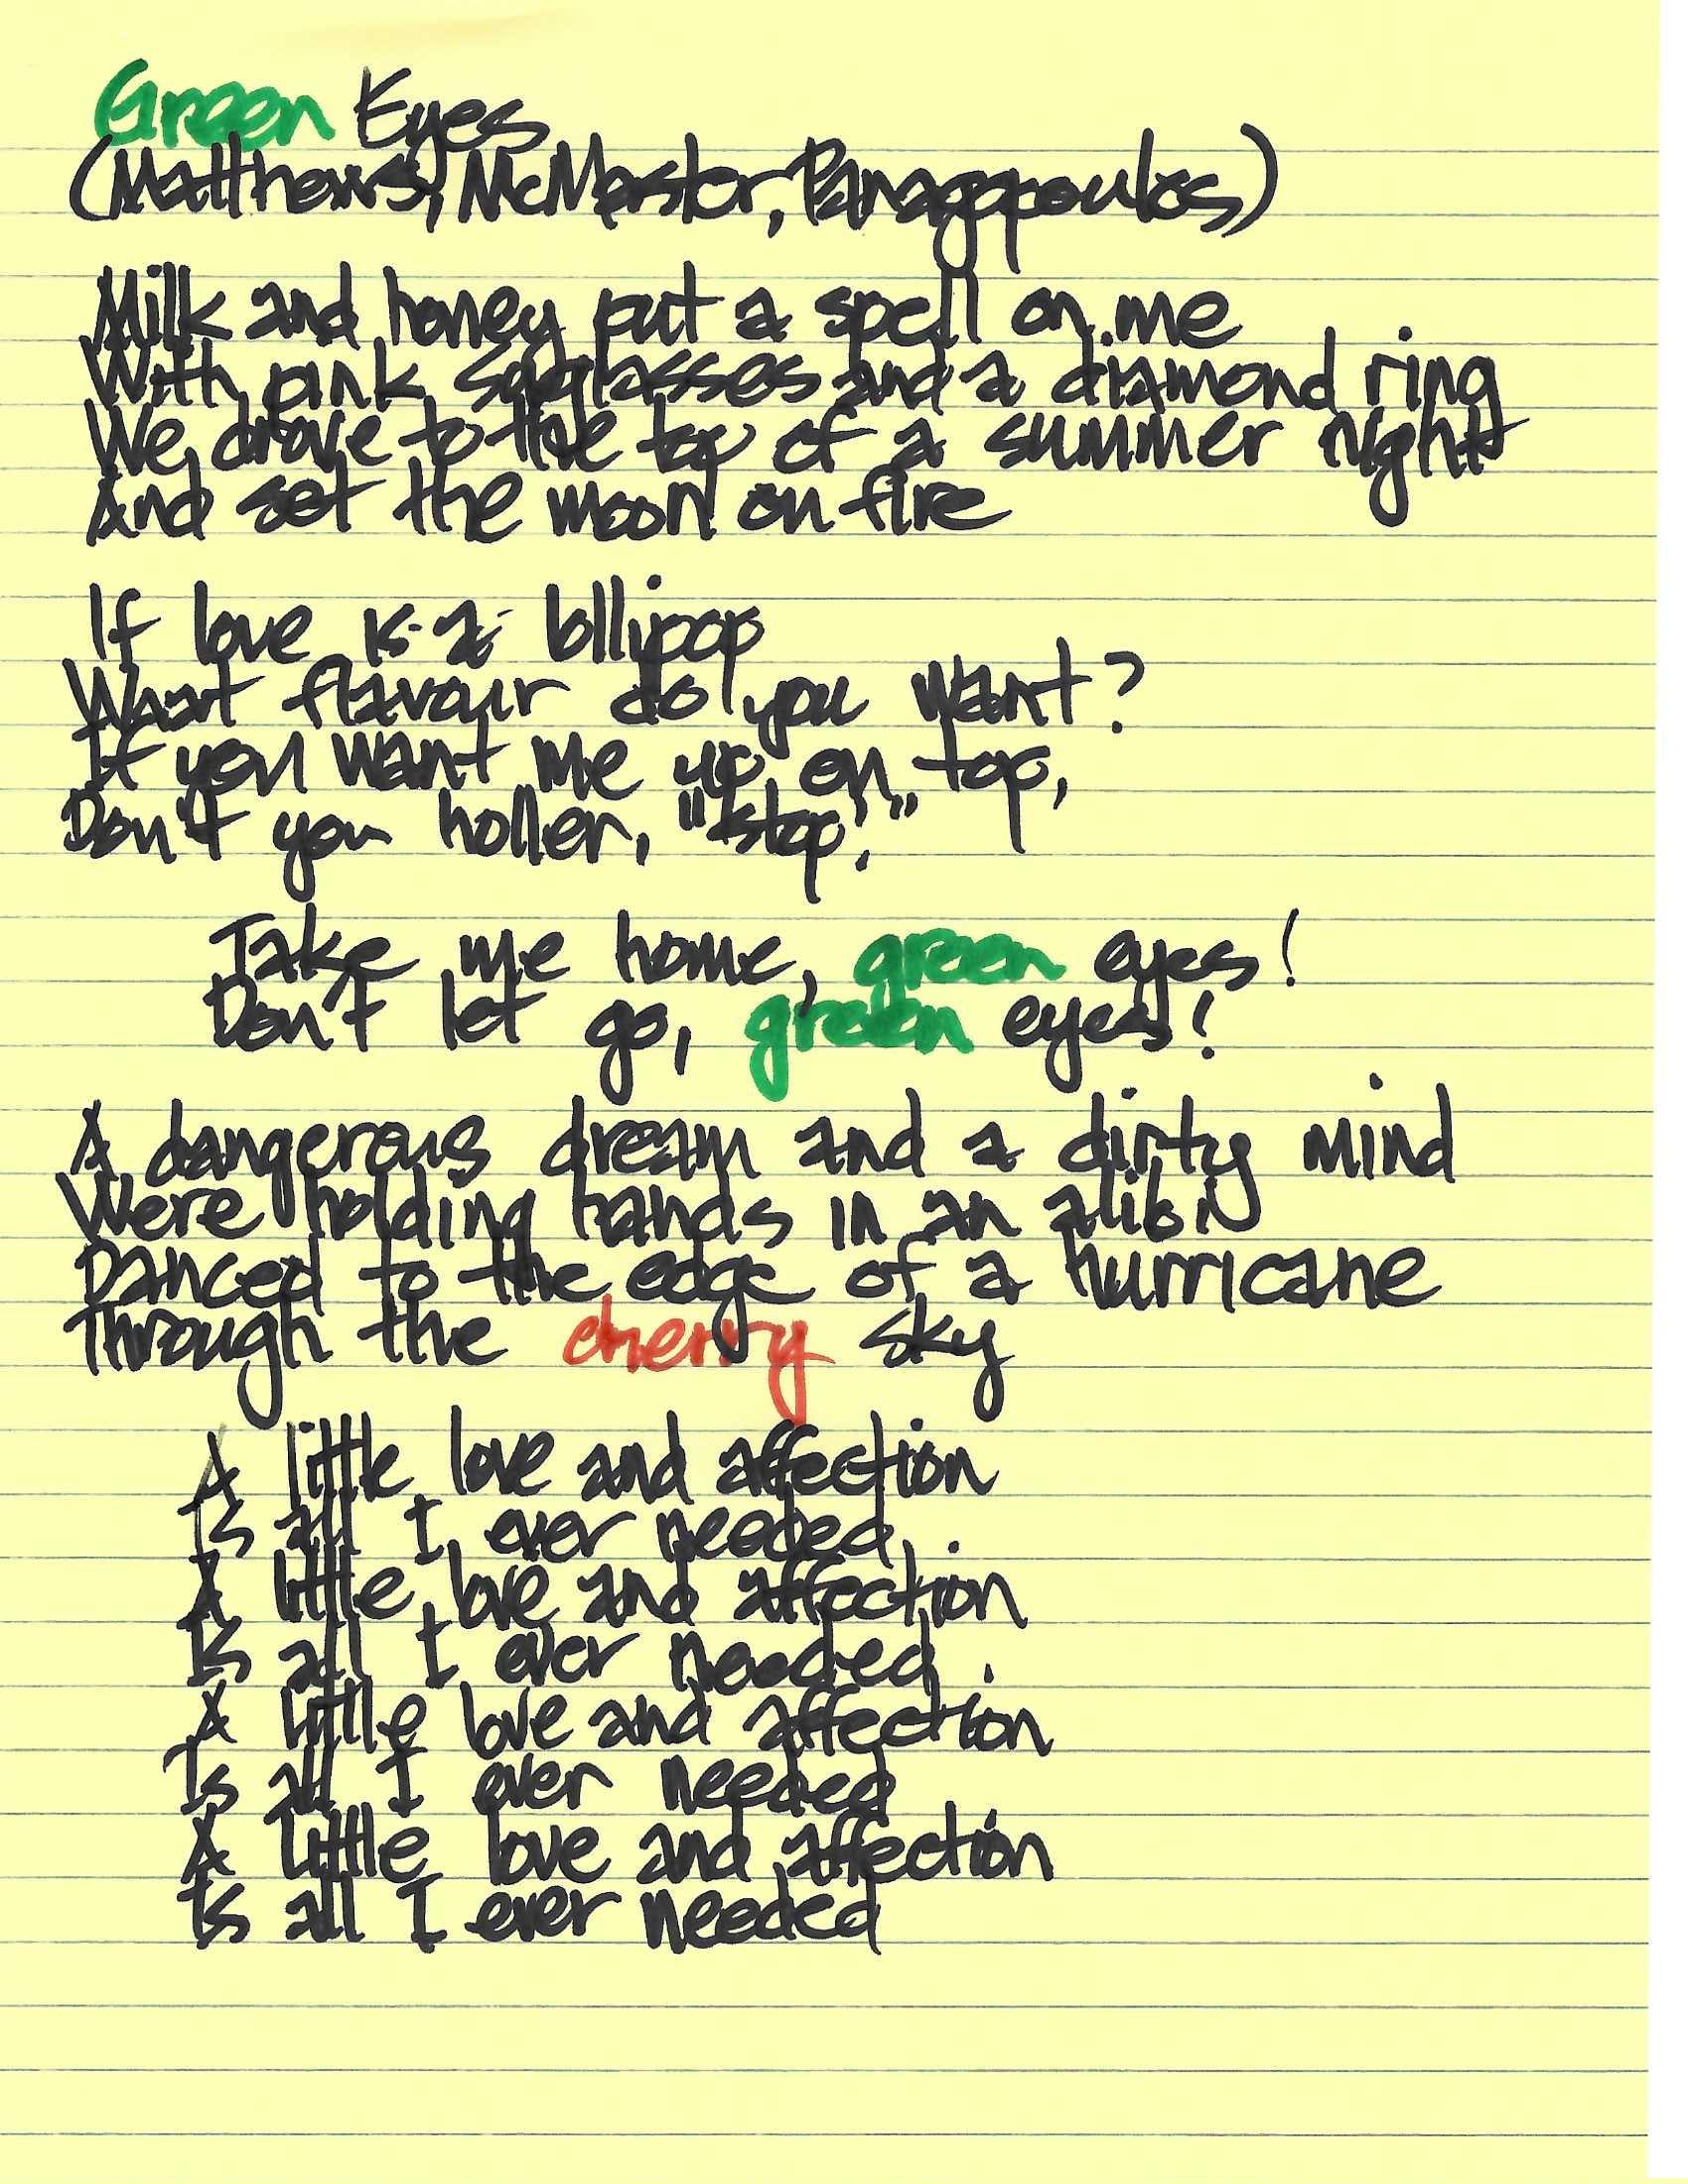 Green Eyes
(Matthews, McMaster, Panagopoulos)
Milk and honey put a spell on me
With pink sunglasses and a diamond ring
We drove to the top of a summer night
And set the moon on fire
If love is a lollipop
What flavour do you want?
If you want me up on top,
Don't you holler, "stop!"
Take me home, green eyes!
Don't let go, green eyes!
A dangerous dream and a dirty mind
Were holding hands in an alibi
Danced to the edge of a hurricane
Through the cherry sky
A little love and affection
Is all I ever needed
A little love and affection
Is all I ever needed
A little love and affection
Is all I ever needed
A little love and affection
Is all I ever needed